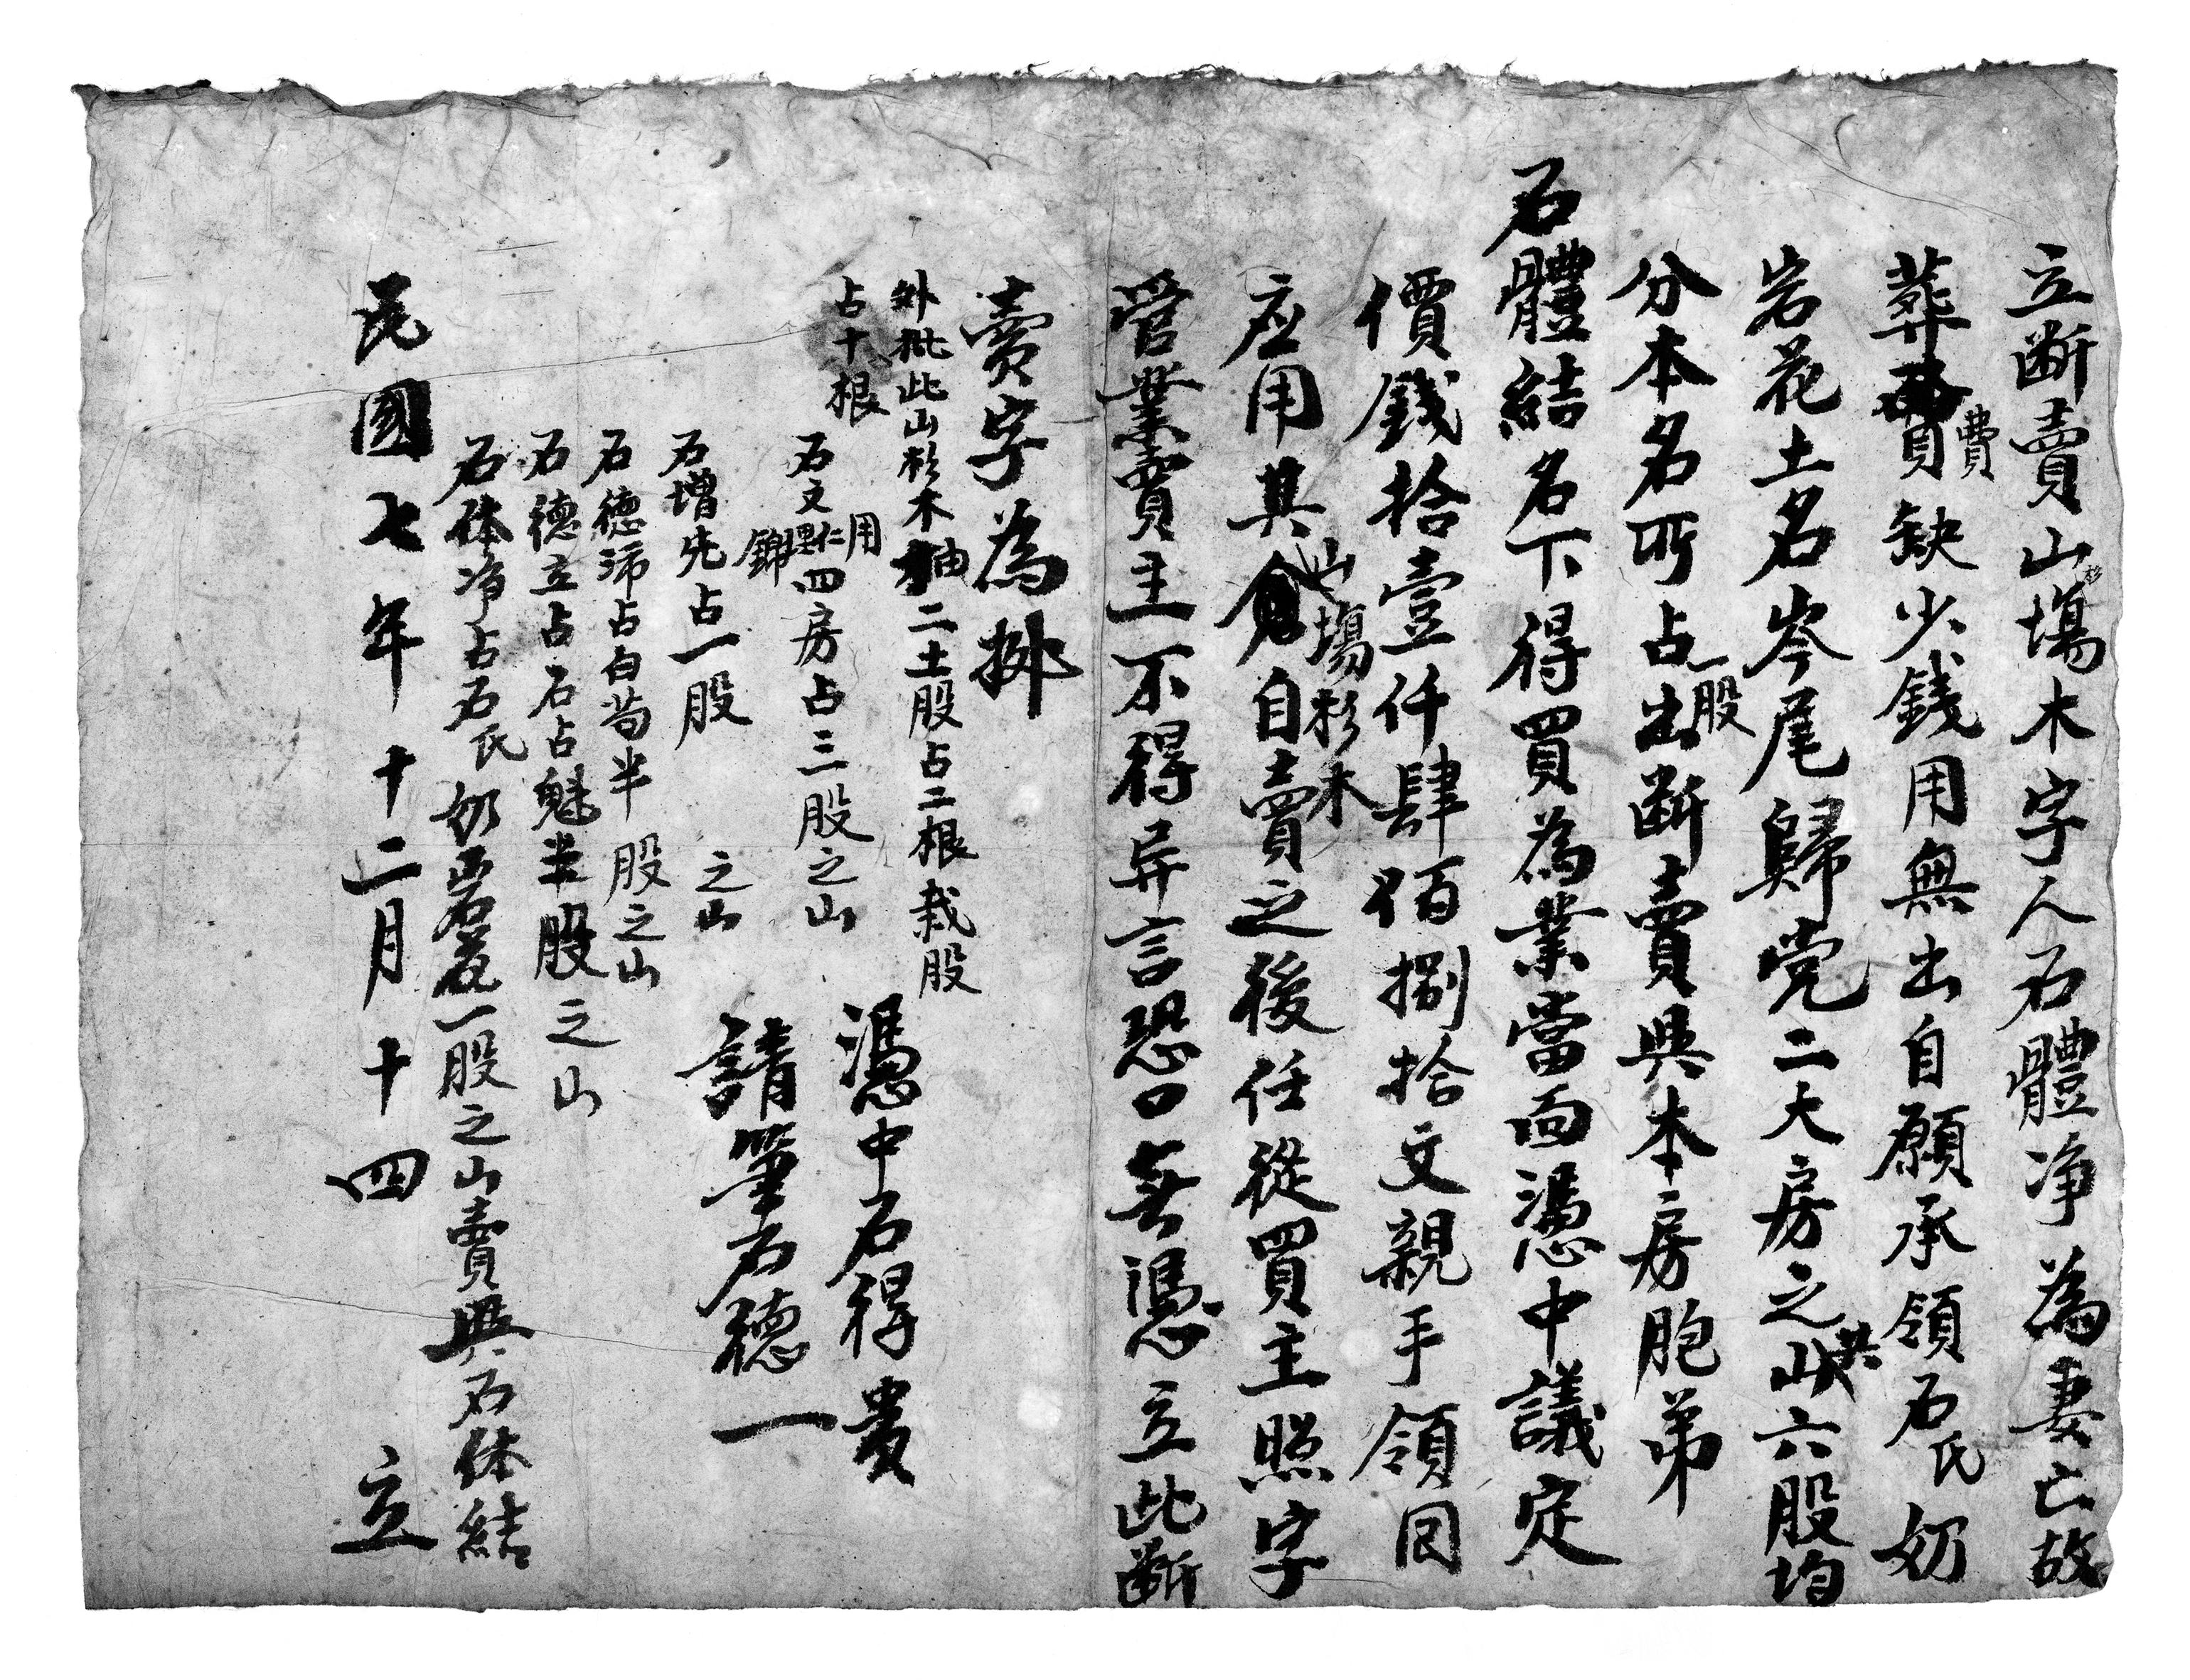 立断賣山塲杉木字人石體净為妻亡故
葬費缺少錢用無出自願承領石氏奶
岩花土名岑尾歸党二大房之山共六股均
分本名所占一股出断賣與本房胞弟
石體結名下得買為業當面憑中議定
價錢拾壹仟肆佰捌拾文親手領回
应用其山塲杉木自賣之後任從買主照字
管業賣主不得异言恐口無憑立此断
賣字為挷
外批此山杉木抽二土股占二根栽股
占十根
石文 用 仁 錦 四房占三股之山
石增先占一股之山
石德沛占白苟半股之山
石德立占石占魁半股之山
石体净占石氏奶岩花一股之山賣與石体結
憑中石得貴
請筆石德一
民國七年十二月十四立